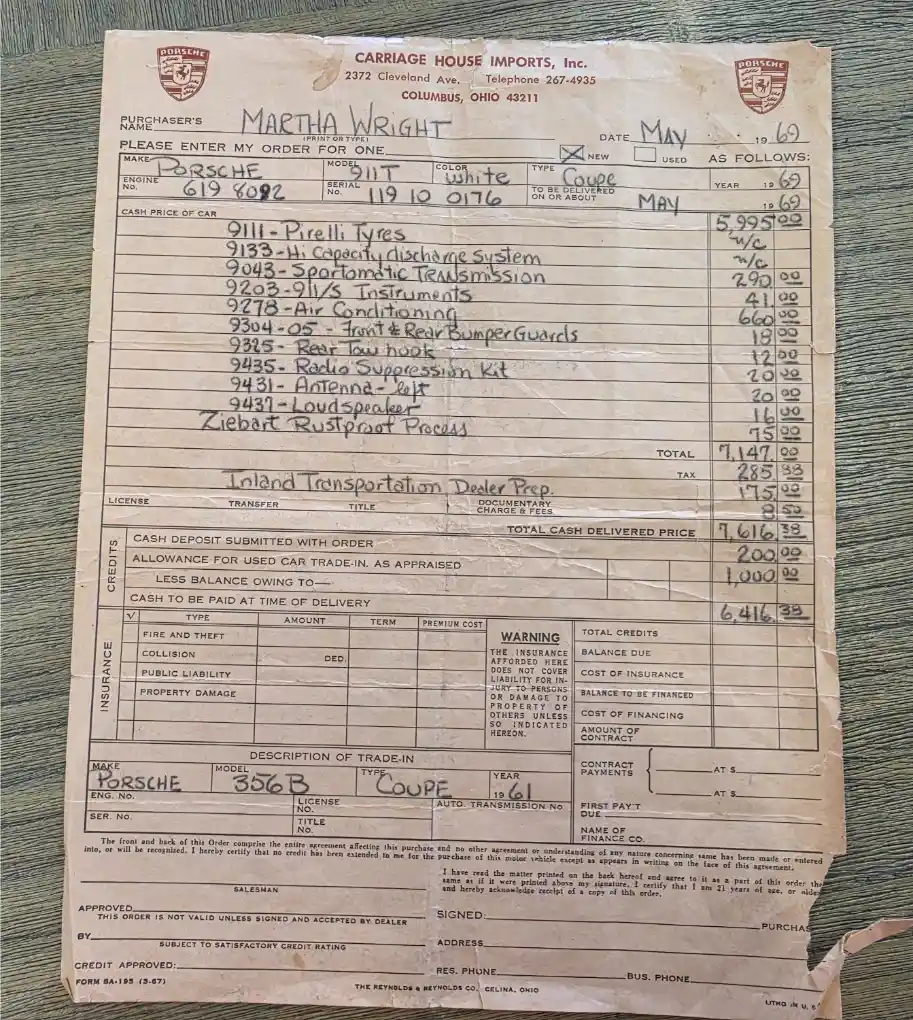 PORSCHE
PORSCHE
CARRIAGE HOUSE IMPORTS, Inc.
2372 Cleveland Ave. Telephone 267-4935
COLUMBUS, OHIO 43211
PURCHASER'S NAME MARTHA WRIGHT
(PRINT OR TYPE)
DATE MAY 19 69
PLEASE ENTER MY ORDER FOR ONE X NEW USED AS FOLLOWS:
MAKE PORSCHE MODEL 911T COLOR white TYPE Coupe YEAR 19 69
ENGINE No. 619 8092 SERIAL NO. 119 10 0176 TO BE DELIVERED ON OR ABOUT MAY 19 69
CASH PRICE OF CAR 5,995 00
9111-Pirelli Tyres n/c
9133-Hi Capacity discharge System n/c
9043-Sportomatic Transmission 290 00
9203-911/S Instruments 41 00
9278-Air Conditioning 660 00
9304-05 - Front & Rear Bumper Guards 18 00
9325- Rear Tow hook 12 00
9435- Radio Suppression Kit 20 00
9431- Antenna- left 20 00
9437-Loudspeaker 16 00
Ziebart Rustproof Process 75 00
TOTAL 7,147. 00
TAX 285. 88
Inland Transportation Dealer Prep. 175. 00
LICENSE TRANSFER TITLE DOCUMENTARY CHARGE & FEES 8 50
TOTAL CASH DELIVERED PRICE 7,616. 38
CREDITS
CASH DEPOSIT SUBMITTED WITH ORDER 200. 00
ALLOWANCE FOR USED CAR TRADE-IN, AS APPRAISED 1,000 00
LESS BALANCE OWING TO—
CASH TO BE PAID AT TIME OF DELIVERY 6,416. 38
INSURANCE
√ TYPE AMOUNT TERM PREMIUM COST
FIRE AND THEFT
COLLISION DED.
PUBLIC LIABILITY
PROPERTY DAMAGE
WARNING
THE INSURANCE
AFFORDED HERE
DOES NOT COVER
LIABILITY FOR IN-
JURY TO PERSONS
OR DAMAGE TO
PROPERTY OF
OTHERS UNLESS
SO INDICATED
HEREON.
TOTAL CREDITS
BALANCE DUE
COST OF INSURANCE
BALANCE TO BE FINANCED
COST OF FINANCING
AMOUNT OF CONTRACT
DESCRIPTION OF TRADE-IN
MAKE PORSCHE MODEL 356B TYPE COUPE YEAR 1961
ENG. NO. LICENSE NO. AUTO. TRANSMISSION NO.
SER. NO. TITLE NO.
CONTRACT PAYMENTS AT $
AT $
FIRST PAY'T DUE
NAME OF FINANCE CO.
The front and back of this Order comprise the entire agreement affecting this purchase and no other agreement or understanding of any nature concerning same has been made or entered
into, or will be recognized. I hereby certify that no credit has been extended to me for the purchase of this motor vehicle except as appears in writing on the face of this agreement.
I have read the matter printed on the back hereof and agree to it as a part of this order the
same as if it were printed above my signature. I certify that I am 21 years of age, or older
and hereby acknowledge receipt of a copy of this order.
SALESMAN
APPROVED
THIS ORDER IS NOT VALID UNLESS SIGNED AND ACCEPTED BY DEALER
BY
SUBJECT TO SATISFACTORY CREDIT RATING
CREDIT APPROVED:
SIGNED: PURCHAS
ADDRESS
RES. PHONE BUS. PHONE
FORM SA-195 (5-67)
THE REYNOLDS & REYNOLDS CO., CELINA, OHIO
LITHO IN U. S